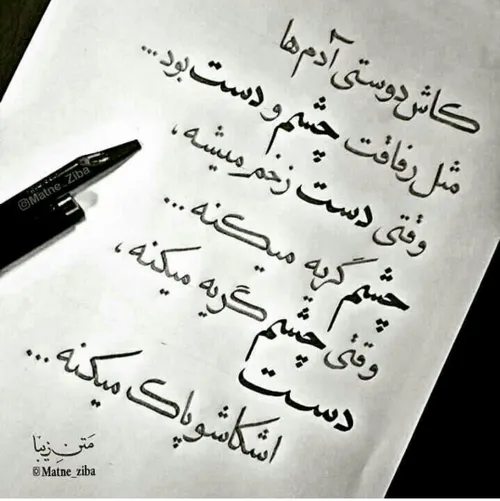 کاش دوستی آدم‌ها
مثل رفاقت چشم و دست بود...
وقتی دست زخم میشه،
چشم گریه میکنه...
وقتی چشم گریه میکنه،
دست
اشکاشو پاک میکنه...
@Matne_Ziba
مَتنِ زیبا
©Matne_ziba